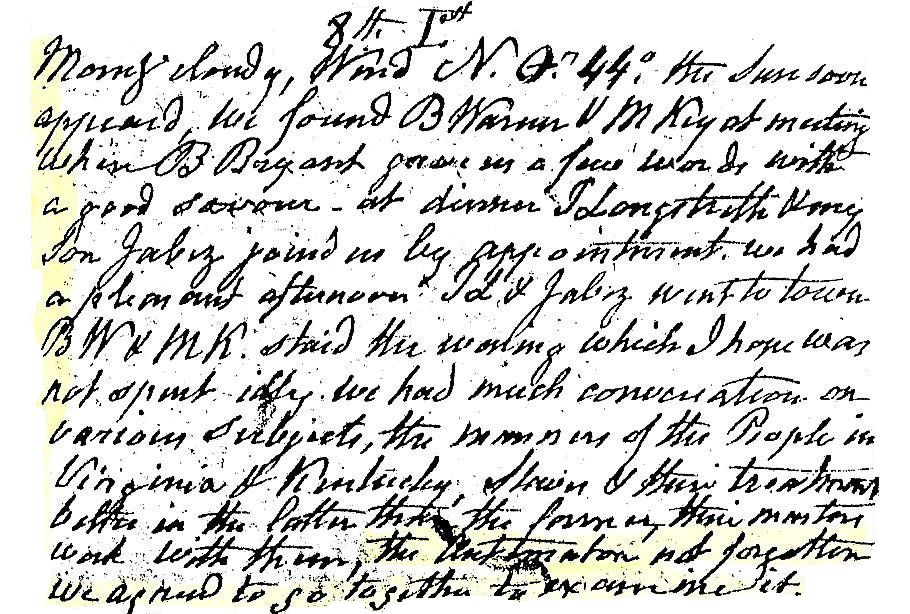 8th. 1st
Morng cloudy, Wind N. Tr. 44°. the Sun soon
appeard, we found B Warner & M Key at meeting
when B Bryant gave us a few words with
a good savour - at dinner I Longstreth & my
Son Jabez joind us by appointment. we had
a pleasant afternoon I L & Jabez went to town
B W & M K. staid the evening which I hope was
not spent idly we had much conversation on
various Subjects, the manners of the People in
Virginia & Kentucky, Slaves & their treatment
better in the latter than the former, their masters
work with them, the Automaton not forgotten
we agreed to go together to examine it.